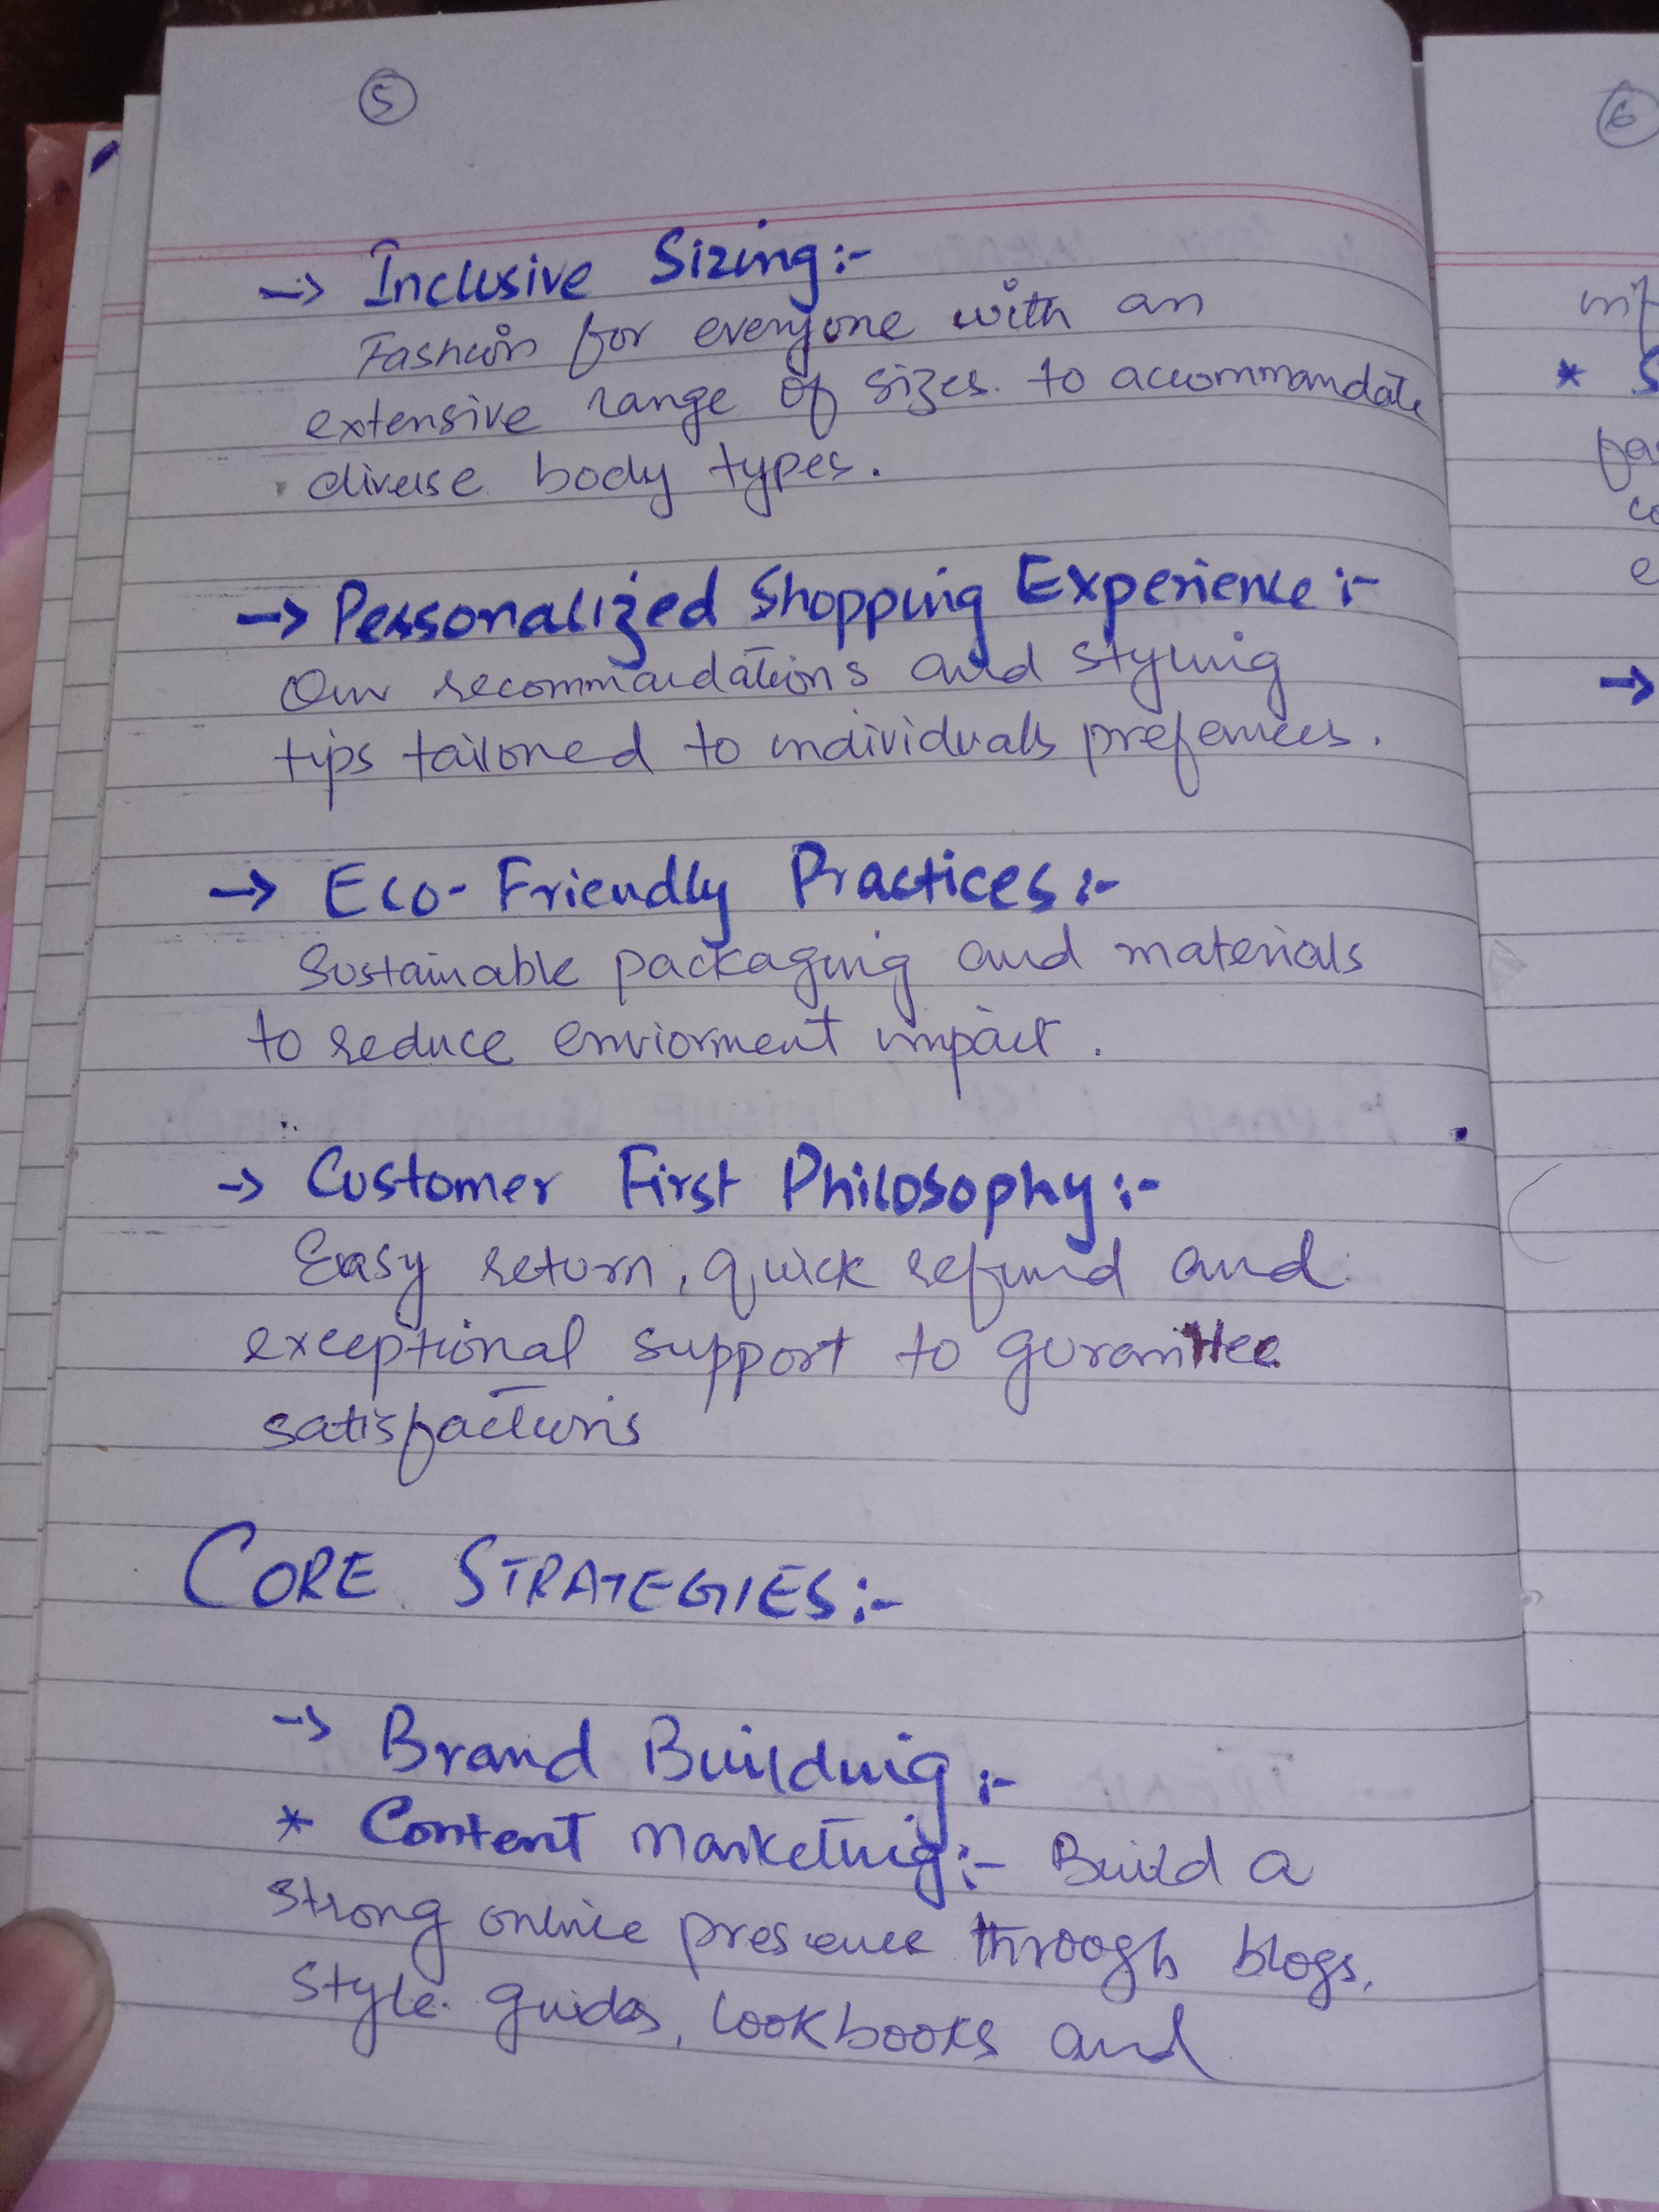 5
→ Inclusive Sizing:-
Fashion for everyone with an
extensive range of sizes. to accommandate
diverse body types.
→ Personalized Shopping Experience:-
Our recommardations and styling
tips tailored to individuals prefernces.
→ Eco-Friendly Practices:-
Sustainable packaging and materials
to reduce enviorment impact.
→ Customer First Philosophy:-
Easy return, quick refund and
exceptional support to gurantee
satisfactions
CORE STRATEGIES:-
→ Brand Building:-
* Content Marketing:- Build a
strong online presence through blogs,
style guides, lookbooks and
6
* S
co
e
→